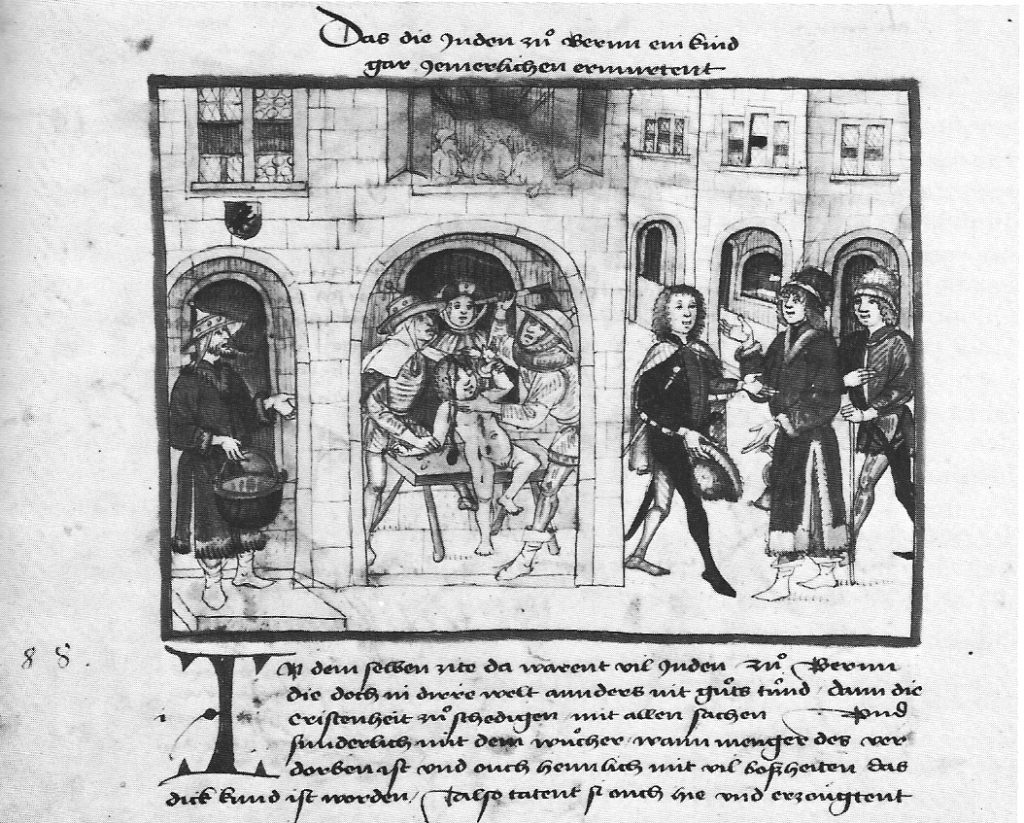 Das die Juden zuͦ Bernn ein kind
gar jemerlichen ermurtent
88.
IN dem selben zite da warent vil Juden zuͦ Bernn
die doch in dirre welt annders nit guͦts tuͦnd, dann die
cristenheit zuͦ schedigen mit allen sachen Und
sunderlich mit dem wuͦcher, wann menger des ver
dorben ist und ouch heimlich mit vil boßheiten das
dick kund ist worden, Also tatent si ouch hie und erzoͤugtent